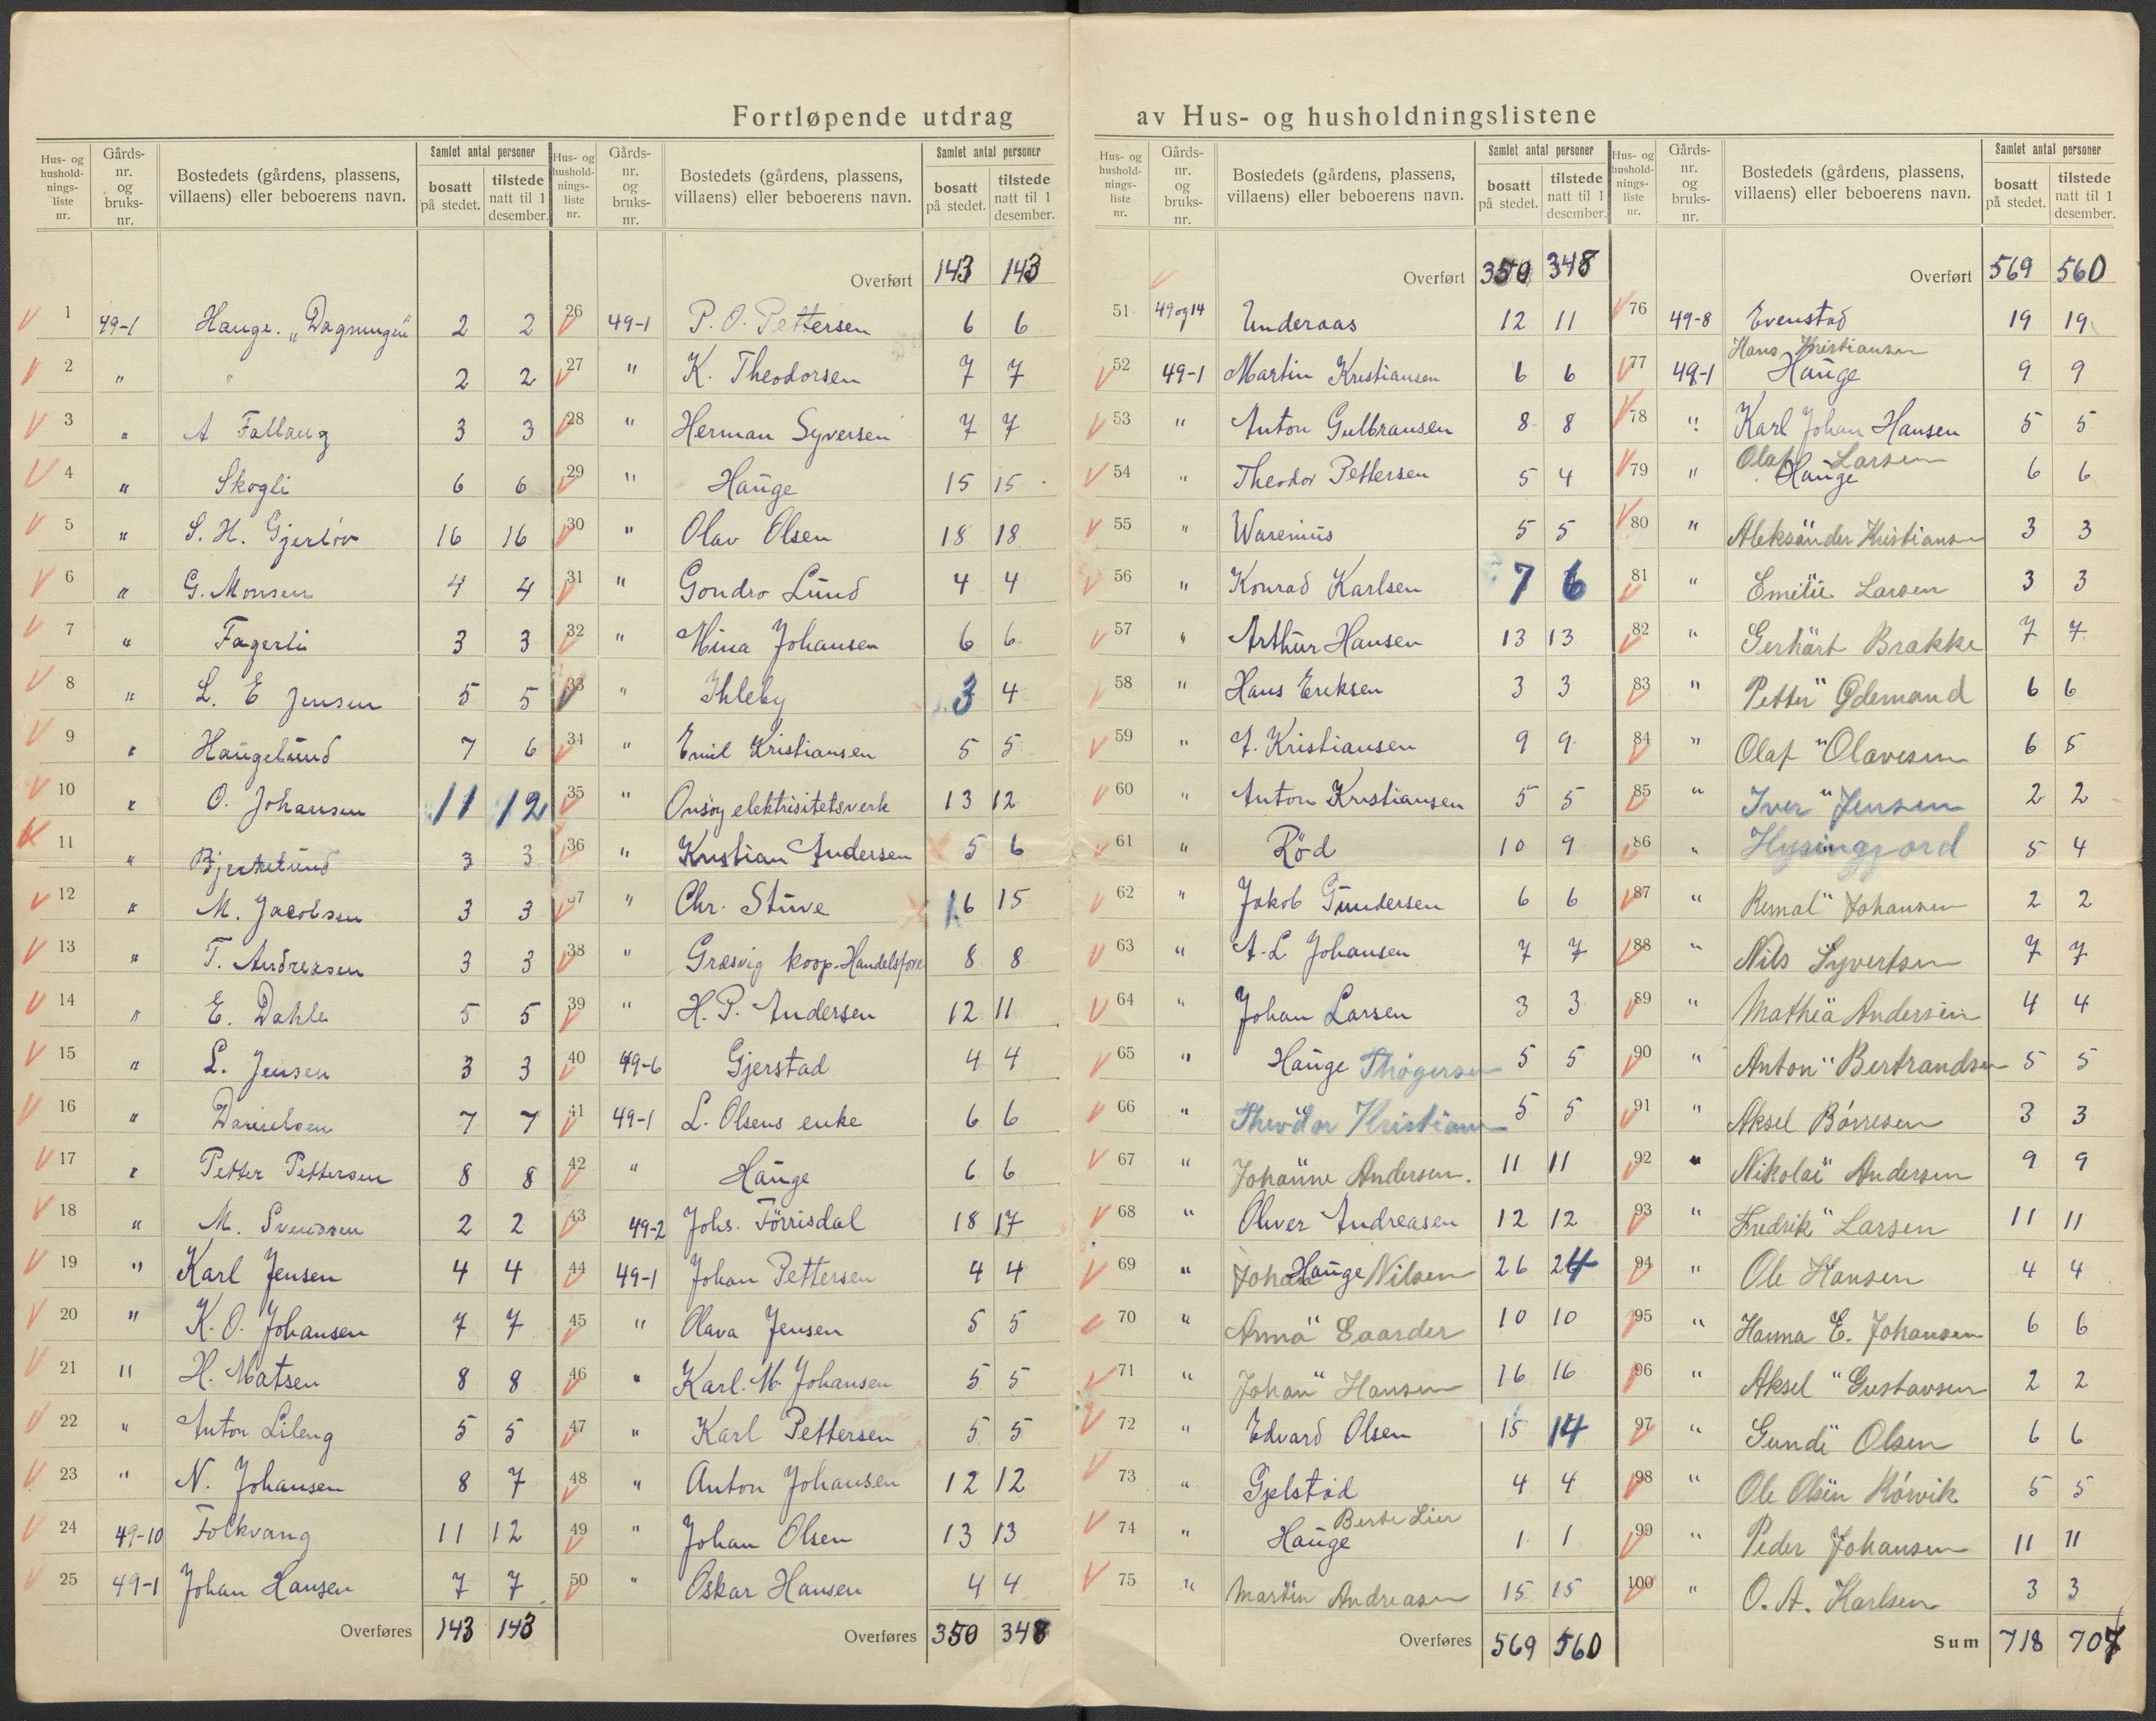 Fortløpende utdrag av Hus- og husholdningslistene
Hus- og hushold-nings-liste nr. Gårds-nr. og bruks-nr. Bostedets (gårdens, plassens, villaens) eller beboerens navn. Samlet antal personer bosatt på stedet. tilstede natt til 1 desember.
1 49-1 Hauge. „Dagnungen" 2 2
2 " " 2 2
3 " A Fallang 3 3
4 " Skogli 6 6
5 " S. H. Gjerløv 16 16
6 " G. Monsen 4 4
7 " Fagerli 3 3
8 " L. E Jensen 5 5
9 " Haugelund 7 6
10 " O. Johansen 11 12
11 " Bjerkelund 3 3
12 " M. Jacobsen 3 3
13 " T. Andreasen 3 3
14 " E. Dahle 5 5
15 " L. Jensen 3 3
16 " Danielsen 7 7
17 " Petter Pettersen 8 8
18 " M. Svendsen 2 2
19 " Karl Jensen 4 4
20 " K. O. Johansen 7 7
21 " H. Matsen 8 8
22 " Anton Lileng 5 5
23 " N. Johansen 8 7
24 49-10 Folkvang 11 12
25 49-1 Johan Hansen 7 7
Overføres 143 143
Hus- og hushold-nings-liste nr. Gårds-nr. og bruks-nr. Bostedets (gårdens, plassens, villaens) eller beboerens navn. Samlet antal personer bosatt på stedet. tilstede natt til 1 desember.
Overført 143 143
26 49-1 P. O. Pettersen 6 6
27 " K. Theodorsen 7 7
28 " Herman Syversen 7 7
29 " Hauge 15 15
30 " Olav Olsen 18 18
31 " Gondro Lund 4 4
32 " Mina Johansen 6 6
33 " Ihleby 3 4
34 " Emil Kristiansen 5 5
35 " Onsøy elektrisitetsverk 13 12
36 " Kristian Andersen 5 6
37 " Chr. Stuve 16 15
38 " Græsvig koop. Handelsfore 8 8
39 " H. P. Andersen 12 11
40 49-6 Gjerstad 4 4
41 49-1 L. Olsens enke 6 6
42 " Hauge 6 6
43 49-2 Johs. Førrisdal 18 17
44 49-1 Johan Pettersen 4 4
45 " Olava Jensen 5 5
46 " Karl. M. Johansen 5 5
47 " Karl Pettersen 5 5
48 " Anton Johansen 12 12
49 " Johan Olsen 13 13
50 " Oskar Hansen 4 4
Overføres 350 348
Hus- og hushold-nings-liste nr. Gårds-nr. og bruks-nr. Bostedets (gårdens, plassens, villaens) eller beboerens navn. Samlet antal personer bosatt på stedet. tilstede natt til 1 desember.
Overført 350 348
51 49 og 14 Underaas 12 11
52 49-1 Martin Kristiansen 6 6
53 " Anton Gulbransen 8 8
54 " Theodor Pettersen 5 4
55 " Warenius 5 5
56 " Konrad Karlsen 7 6
57 " Arthur Hansen 13 13
58 " Hans Eriksen 3 3
59 " A. Kristiansen 9 9
60 " Anton Kristiansen 5 5
61 " Rød 10 9
62 " Jakob Gundersen 6 6
63 " A. L Johansen 7 7
64 " Johan Larsen 3 3
65 " Hauge Thøgersen 5 5
66 " Theodor Kristians 5 5
67 " Johanne Andersen. 11 11
68 " Oliver Andreasen 12 12
69 " Johan Hauge Nilsen 26 24
70 " Anna " Gaarder 10 10
71 " Johan " Hansen 16 16
72 " Edvard Olsen 15 14
73 " Gjelstad 4 4
74 " Hauge Berte Lier 1 1
75 " Martin Andreasen 15 15
Overføres 569 560
Hus- og hushold-nings-liste nr. Gårds-nr. og bruks-nr. Bostedets (gårdens, plassens, villaens) eller beboerens navn. Samlet antal personer bosatt på stedet. tilstede natt til 1 desember.
Overført 569 560
76 49-8 Evenstad 19 19
Hans Kristiansen
77 49-1 Hauge 9 9
78 " Karl Johan Hansen 5 5
Olaf Larsen
79 " Hauge 6 6
80 " Aleksander Kristianse 3 3
81 " Emilie Larsen 3 3
82 " Gerhart Brakke 7 7
83 " Petter " Ødemand 6 6
84 " Olaf " Olavesen 6 5
85 " Iver " Jensen 2 2
86 " Hysingjord 5 4
87 " Remal " Johansen 2 2
88 " Nils Syvertsen 7 7
89 " Mathea Andersen 4 4
90 " Anton " Bertrandsen 5 5
91 " Aksel Børresen 3 3
92 " Nikolai Andersen 9 9
93 " Fredrik " Larsen 11 11
94 " Ole Hansen 4 4
95 " Hanna E. Johansen 6 6
96 " Aksel " Gustavsen 2 2
97 " Gundi Olsen 6 6
98 " Ole Olsen Rørvik 5 5
99 " Peder Johansen 11 11
100 " O. A. Karlsen 3 3
Sum 718 707